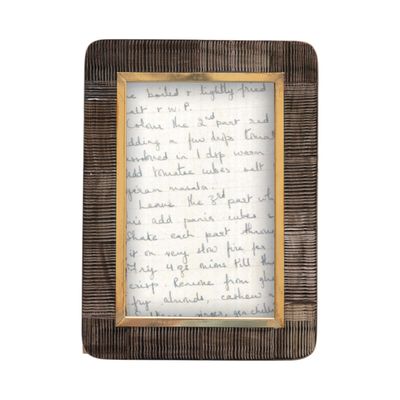 boiled & lightly fried
salt & W.P.
Colour the 2nd part red
adding a few drops tomat
in 1 dsp warm
add tomatoe cubes salt
garam masala.
Leave the 3rd part wh
add panir cubes
Shake each part throu
it on very slow fire fo
Fry 4 oz onions till th
crisp. Remove from ghe
fry almonds, cashew n
ginger,